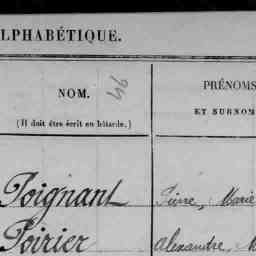 ALPHABÉTIQUE.
NOM.
(Il doit être écrit en bâtarde.)
416
PRÉNOMS
ET SURNOM
Poignant Pierre, Marie
Poirier Alexandre, M